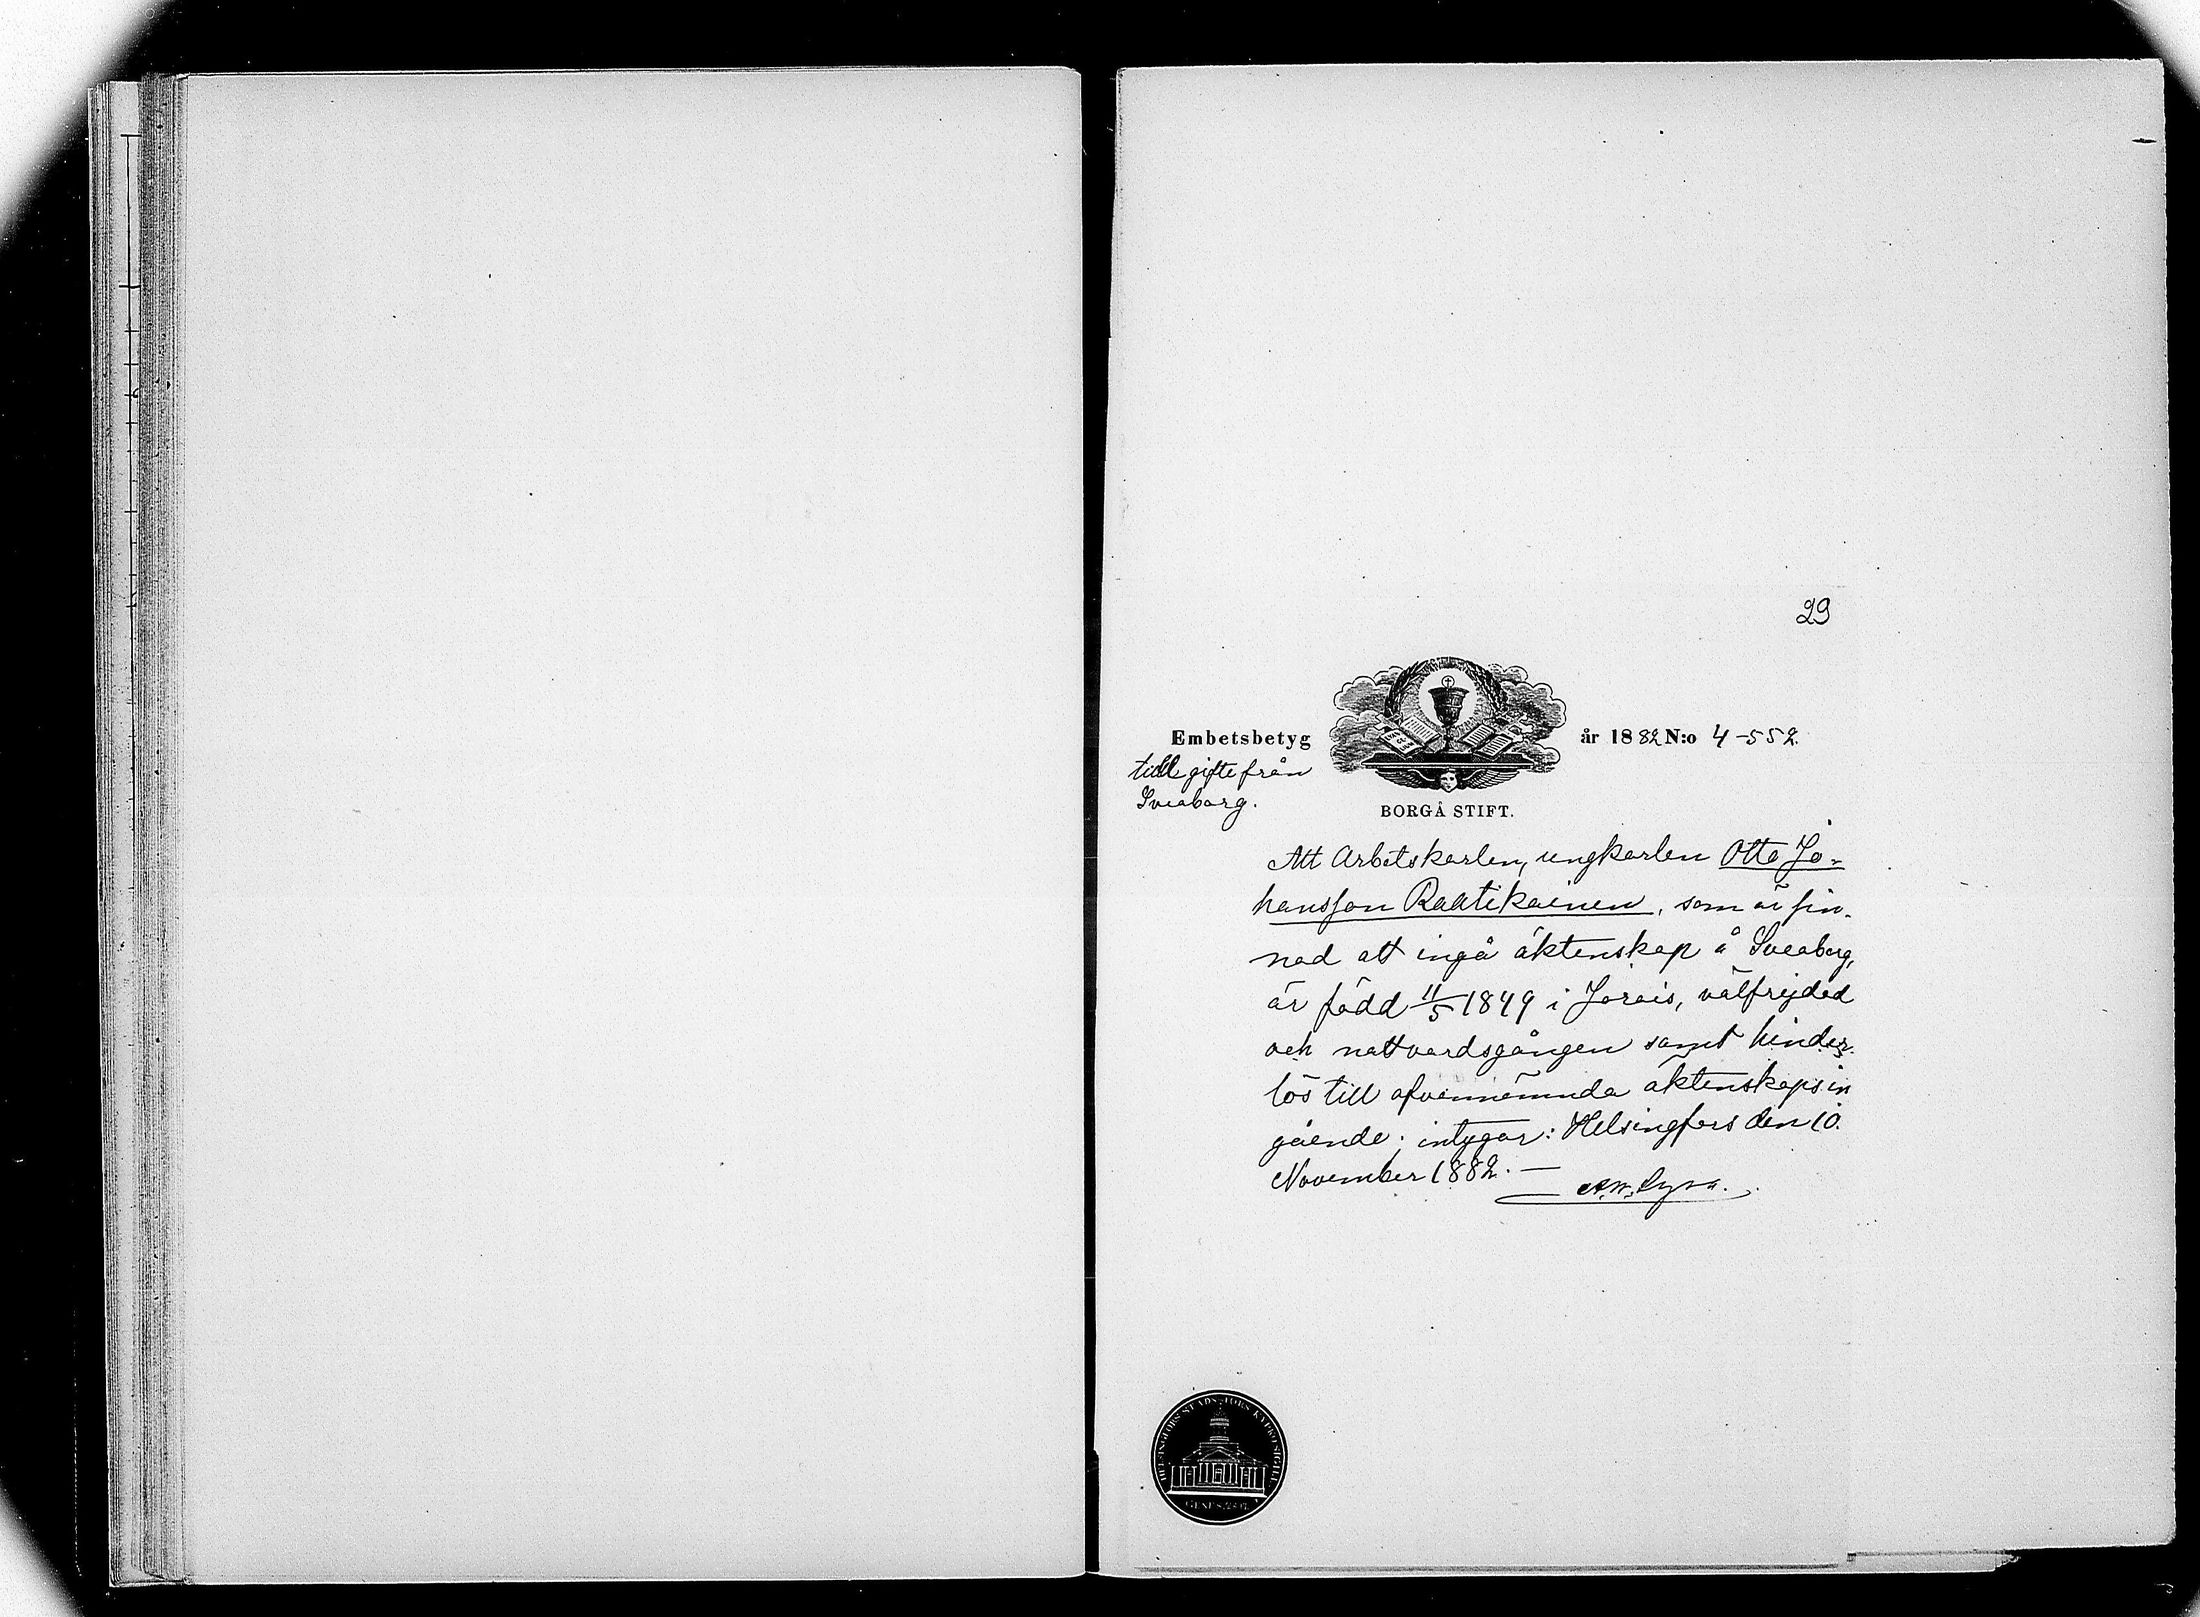 29
Embetsbetyg år 1882 N:o 4-552.
till gifte från
Sveaborg.
BORGÅ STIFT.
Att Arbetskarlen, ungkarlen Otto Jo-
hansson Raatikainen, som är sin-
nad att ingå äktenskap å Sveaborg,
är född 11/5 1849 i Jorois, välfrejdad
och nattvardsgången samt hinder-
lös till ofvannämnda äktenskaps in
gående; intygar: Helsingfors den 10.
November 1882. —
HELSINGFORS STADS-FÖRS. KYRKO SIGILL
GENES. 28:17.